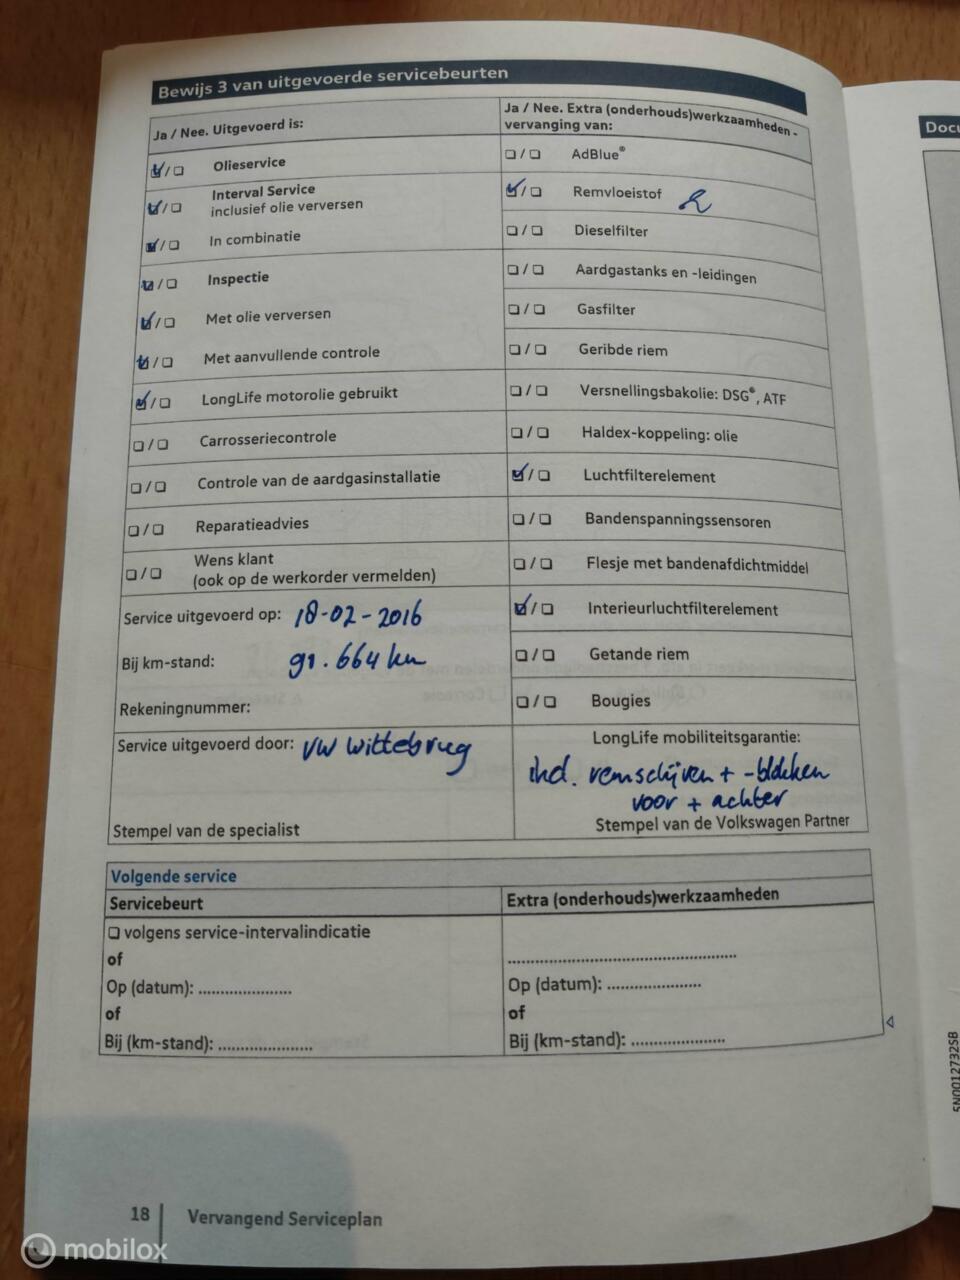 Bewijs 3 van uitgevoerde servicebeurten
Ja / Nee. Uitgevoerd is:
☑/☐ Olieservice
☑/☐ Interval Service
inclusief olie verversen
☑/☐ In combinatie
☑/☐ Inspectie
☑/☐ Met olie verversen
☑/☐ Met aanvullende controle
☑/☐ LongLife motorolie gebruikt
☐/☐ Carrosseriecontrole
☐/☐ Controle van de aardgasinstallatie
☐/☐ Reparatieadvies
☐/☐ Wens klant
(ook op de werkorder vermelden)
Service uitgevoerd op: 18-02-2016
Bij km-stand: 91.664 km
Rekeningnummer:
Service uitgevoerd door: VW Wittebrug
Stempel van de specialist
Ja / Nee. Extra (onderhouds)werkzaamheden -
vervanging van:
☐/☐ AdBlue®
☑/☐ Remvloeistof
☐/☐ Dieselfilter
☐/☐ Aardgastanks en -leidingen
☐/☐ Gasfilter
☐/☐ Geribde riem
☐/☐ Versnellingsbakolie: DSG®, ATF
☐/☐ Haldex-koppeling: olie
☑/☐ Luchtfilterelement
☐/☐ Bandenspanningssensoren
☐/☐ Flesje met bandenafdichtmiddel
☑/☐ Interieurluchtfilterelement
☐/☐ Getande riem
☐/☐ Bougies
LongLife mobiliteitsgarantie:
incl. remschijven + -blokken
voor + achter
Stempel van de Volkswagen Partner
Volgende service
Servicebeurt
☐ volgens service-intervalindicatie
of
Op (datum): ......................
of
Bij (km-stand): ......................
Extra (onderhouds)werkzaamheden
.....................................................
Op (datum): ......................
of
Bij (km-stand): ......................
18 Vervangend Serviceplan
Docu
5N0012732SB
mobilox